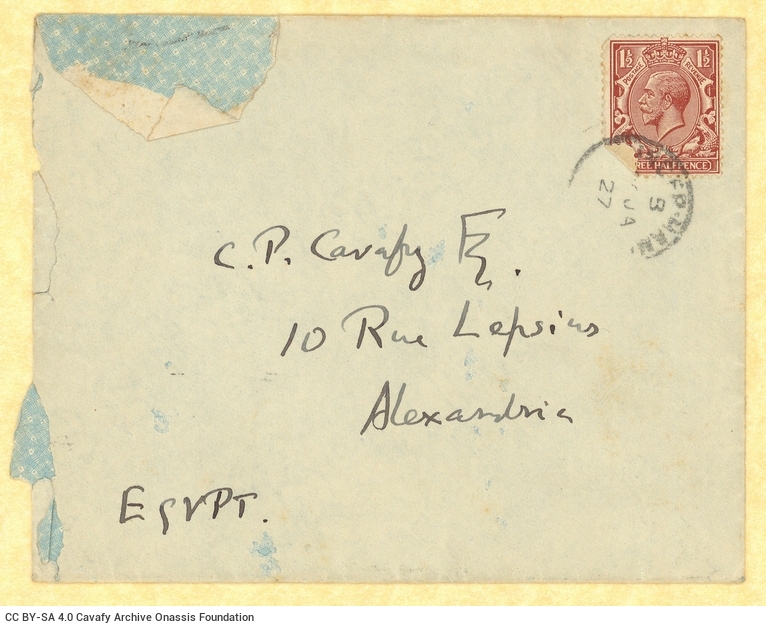 1½ 1½
POSTAGE REVENUE
REE HALFPENCE
8
JA
27
C. P. Cavafy Esq.
10 Rue Lepsius
Alexandria
EGYPT.
CC BY-SA 4.0 Cavafy Archive Onassis Foundation